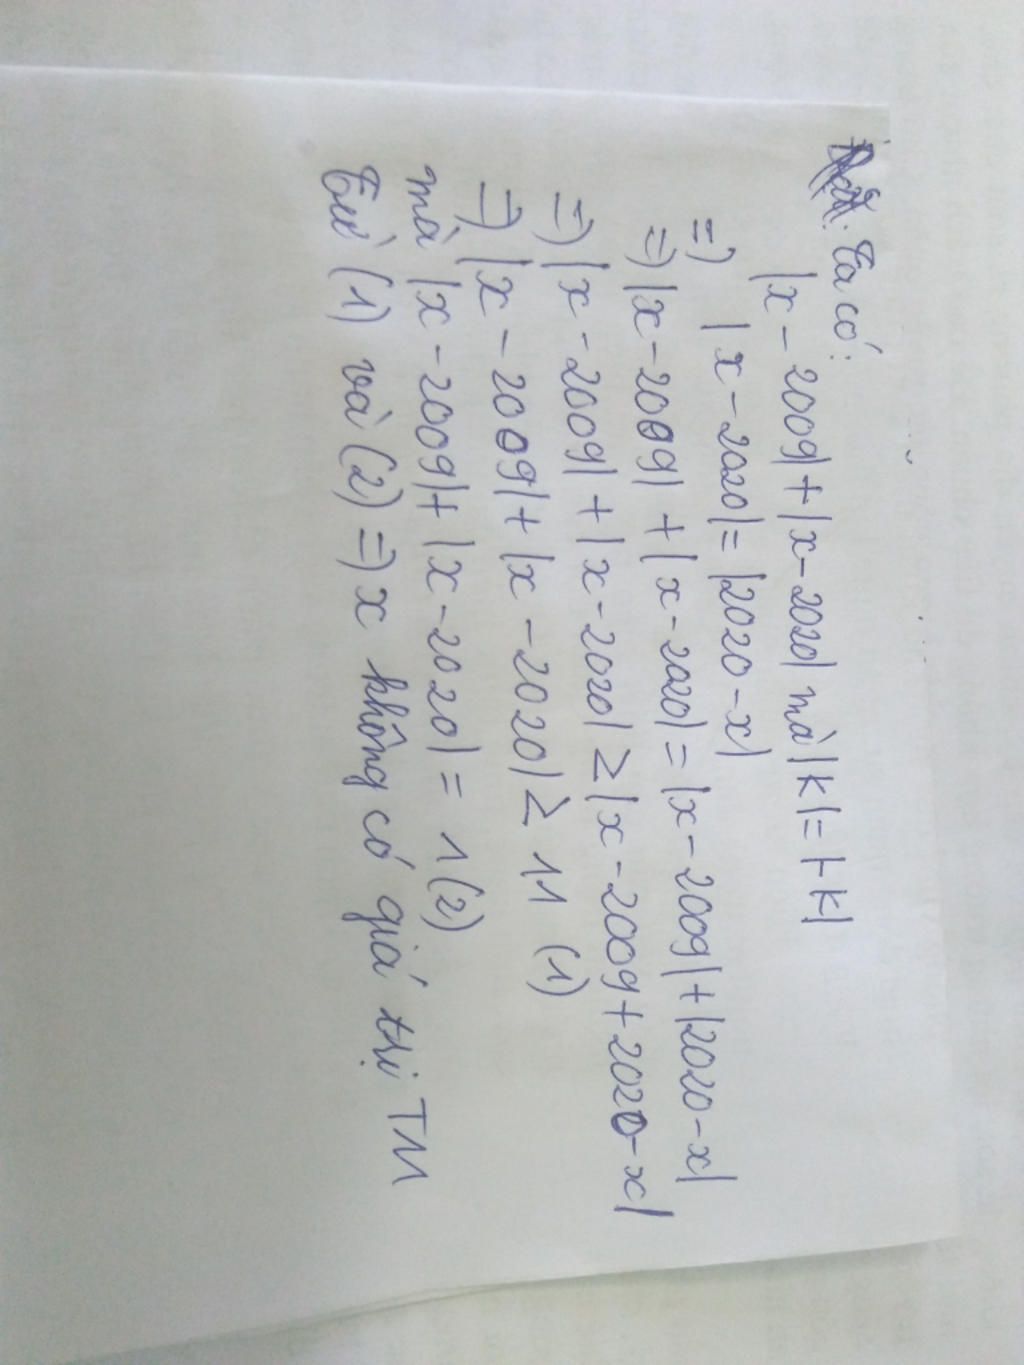 Ta có:
|x - 2009| + |x - 2020| mà |K| = |-K|
=) |x - 2020| = |2020 - x|
=) |x - 2009| + |x - 2020| = |x - 2009| + |2020 - x|
=) |x - 2009| + |x - 2020| ≥ |x - 2009 + 2020 - x|
=) |x - 2009| + |x - 2020| ≥ 11 (1)
mà |x - 2009| + |x - 2020| = 1 (2)
Từ (1) và (2) =) x không có giá trị TM